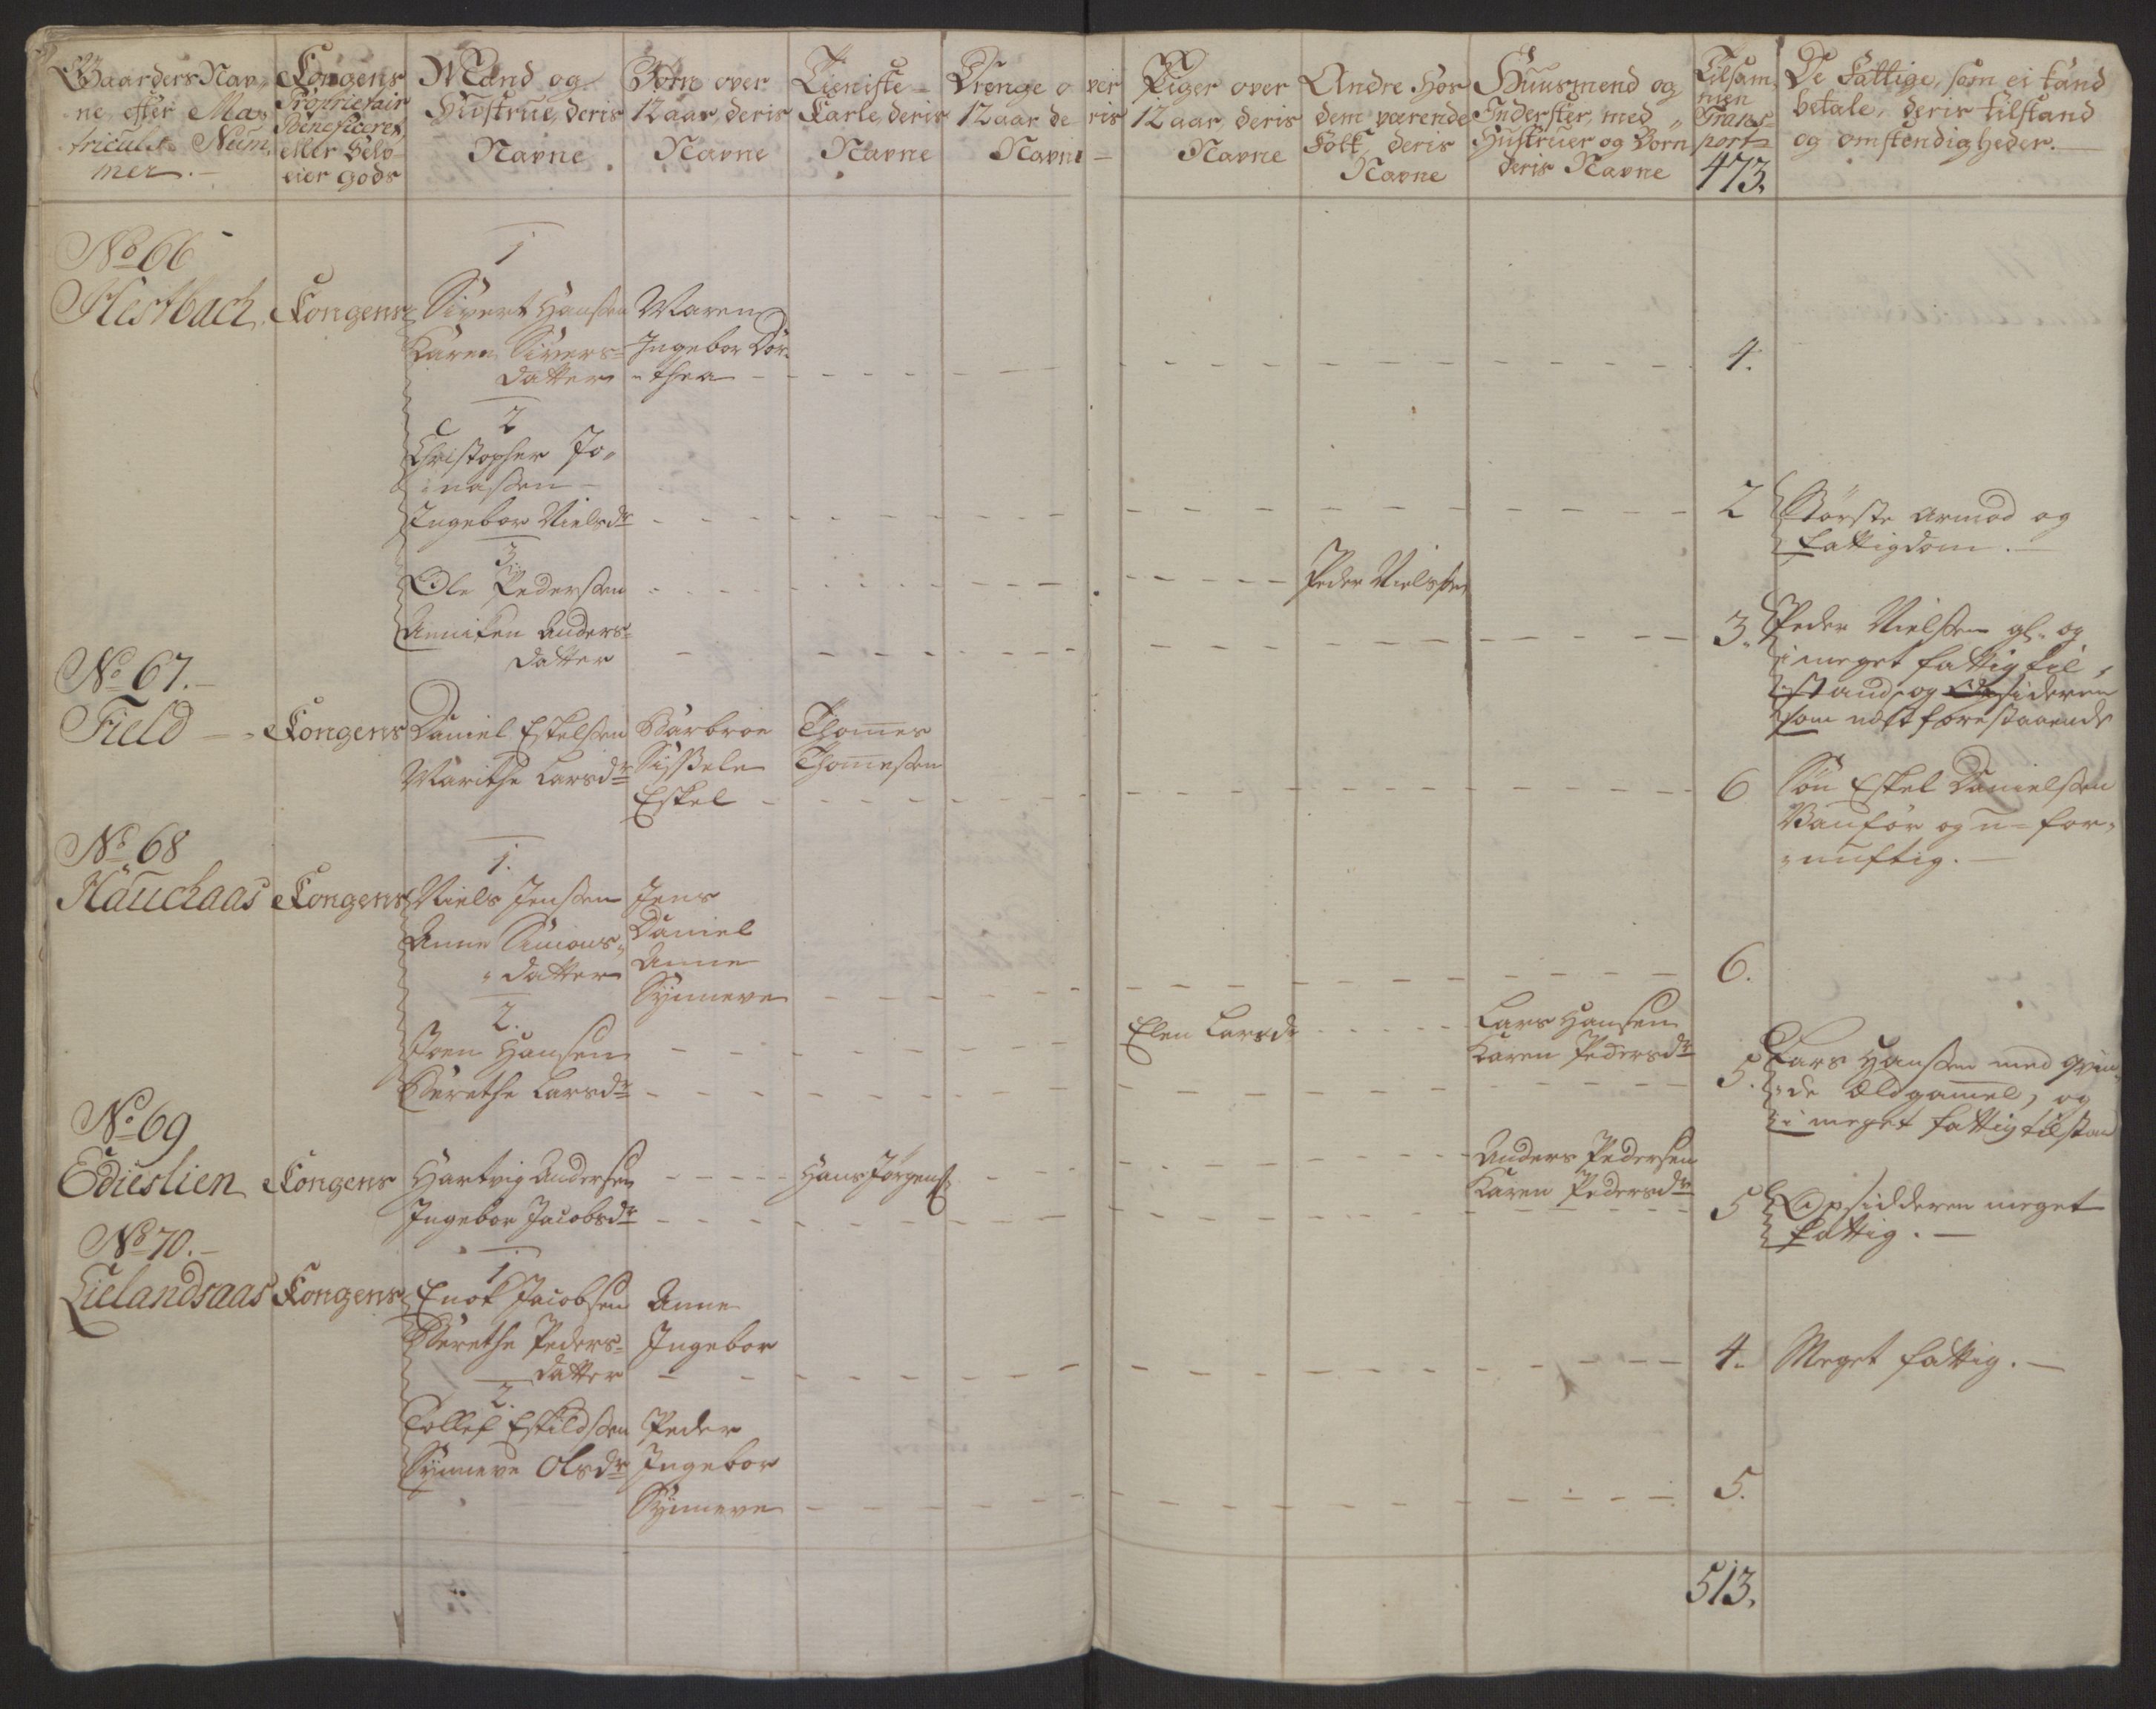 Gaarders Nav-
ne efter Ma-
triculs Num-
mer.
Kongens
Proprietair
Beneficeret
eller Selv-
eier gods
Mænd og
Hustrue, deris
Navne.
Børn over
12 aar, deris
Navne
Tieniste-
Karle, deris
Navne
Drenge over
12 aar deris
Navne
Piger over
12 aar, deris
Navne
Andre hos
dem værende
Folk, deris
Navne
Huusmend og
Inderster, med
Hustruer og Børn
deris Navne
Tilsam
men
Trans-
port
473.
De Fattige, som ei kand
betale, deris tilstand
og omstendigheder.
No 66
Hestbach
Kongens
1
Sivert Hanssen
Karen Sivers-
datter
Maren
Ingebor Dor-
thea
4.
2
Christopher Jo-
nassen
Ingebor Nielsdr
2
Største armod og
fattigdom.
3
Ole Pederssen
Anniken Anders-
datter
Peder Nielssen
3.
Peder Nielssen gl. og
i meget fattig til-
stand, og Opsideren
som næstforestaaende
No 67.
Field
Kongens
Daniel Eskelssen
Marithe Larsdr
Barbroe
Sissele
Eskel
Thomes
Thomessen
6
Søn Eskel Danielssen
Vanför og u-for-
nuftig.
No 68
Hauchaas
Kongens
1.
Niels Jenssen
Anne Simons-
datter
Jens
Daniel
Anne
Synneve
6.
2.
Joen Hansen
Berethe Larsdr
Elen Larsdr
Lars Hansen
Karen Pedersdr
5.
Lars Hanssen med qvin-
de ældgammel, og
i meget fattig tilstan
No 69
Edieslien
Kongens
Hartvig Andersen
Ingebor Jacobsdr
Hans Jörgens.
Anders Pedersen
Karen Pedersdr
5
Opsidderen meget
fattig.
No 70.
Lielandsaas
Kongens
1
Enok Jacobsen
Berethe Peders-
datter
Anne
Ingebor
4.
Meget fattig.
2.
Tollef Eskildssen
Synneve Olsdr
Peder
Ingebor
Synneve
5.
513.